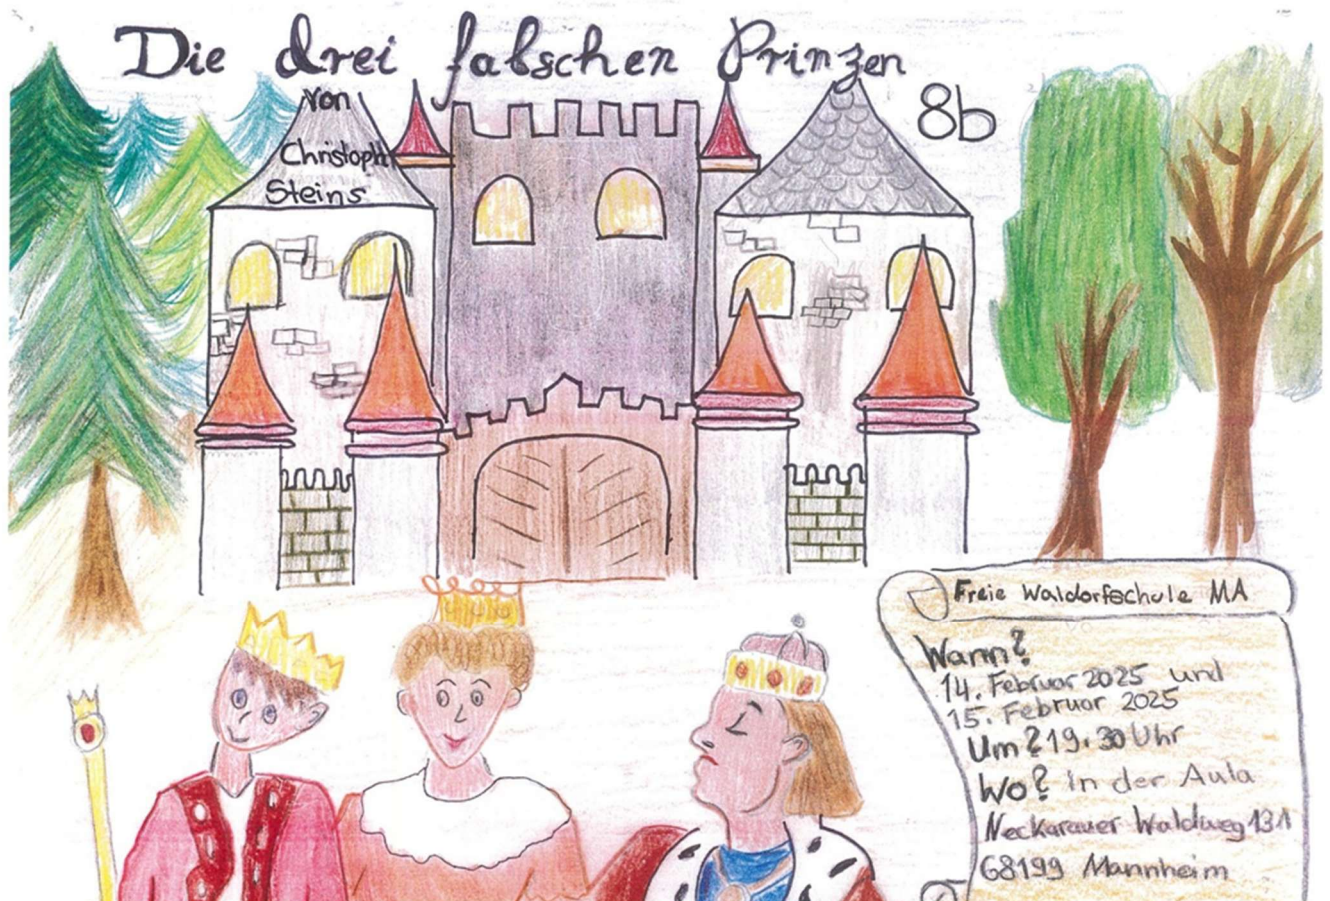 Die drei falschen Prinzen
8b
von
Christoph
Steins
Freie Waldorfschule MA
Wann?
14. Februar 2025 und
15. Februar 2025
Um? 19.30 Uhr
Wo? In der Aula
Neckarauer Waldweg 131
68199 Mannheim